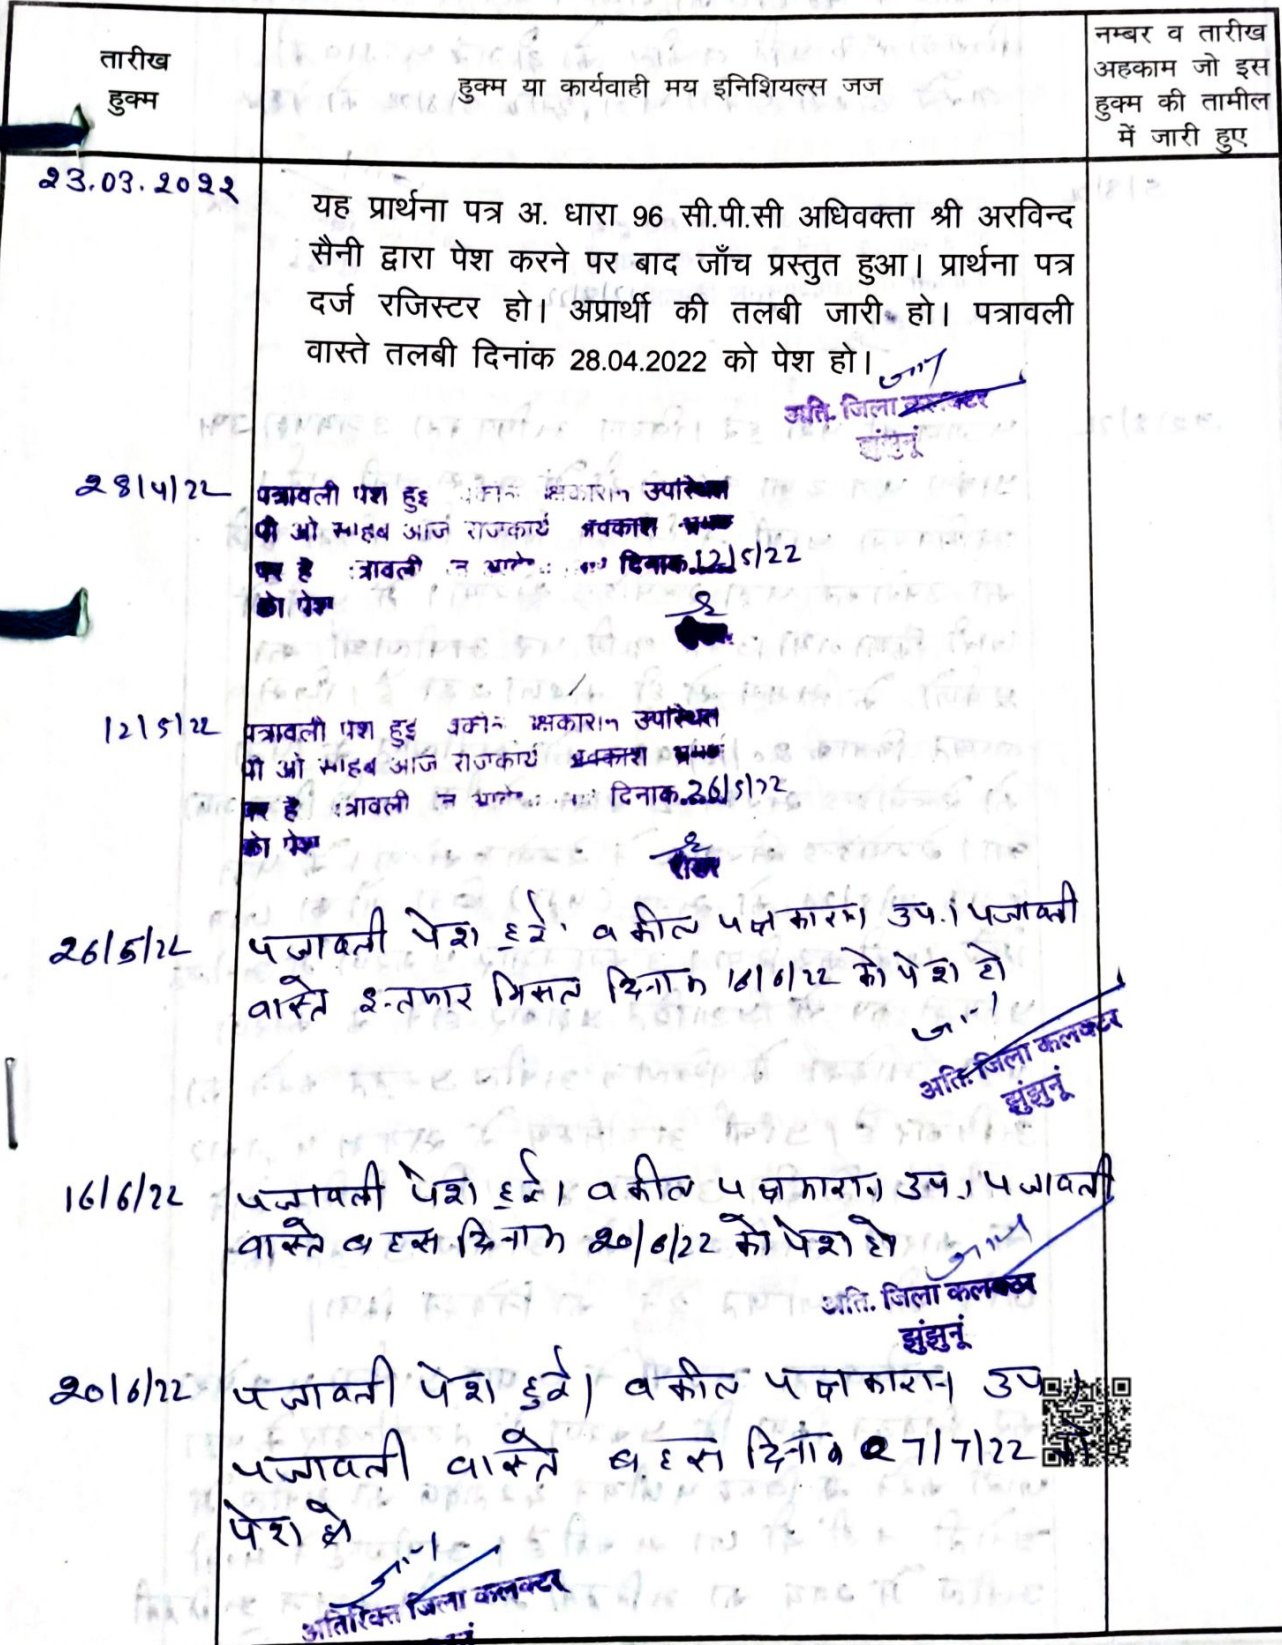 तारीख
हुक्म
हुक्म या कार्यवाही मय इनिशियल्स जज
नम्बर व तारीख
अहकाम जो इस
हुक्म की तामील
में जारी हुए
23.03.2022
यह प्रार्थना पत्र अ. धारा 96 सी.पी.सी अधिवक्ता श्री अरविन्द
सैनी द्वारा पेश करने पर बाद जाँच प्रस्तुत हुआ। प्रार्थना पत्र
दर्ज रजिस्टर हो। अप्रार्थी की तलबी जारी हो। पत्रावली
वास्ते तलबी दिनांक 28.04.2022 को पेश हो।
अति. जिला कलक्टर
झुंझुनूं
28/4/22
पत्रावली पेश हुई उपस्थित
पी ओ साहब आज राजकार्य अवकाश
पर है दिनाक 12/5/22
को पेश
12/5/22
पत्रावली पेश हुई उपस्थित
पी ओ साहब आज राजकार्य अवकाश
पर है दिनाक 26/5/22
को पेश
26/5/22
पत्रावली पेश हुई। वकील पक्षकारान उप.। पत्रावली
वास्ते इन्तजार मिसल दिनांक 16/6/22 को पेश हो
अति. जिला कलक्टर
झुंझुनूं
16/6/22
पत्रावली पेश हुई। वकील पक्षकारान उप.। पत्रावली
वास्ते बहस दिनांक 20/6/22 को पेश हो
अति. जिला कलक्टर
झुंझुनूं
20/6/22
पत्रावली पेश हुई। वकील पक्षकारान उप
पत्रावली वास्ते बहस दिनांक 27/7/22
पेश हो
अतिरिक्त जिला कलक्टर